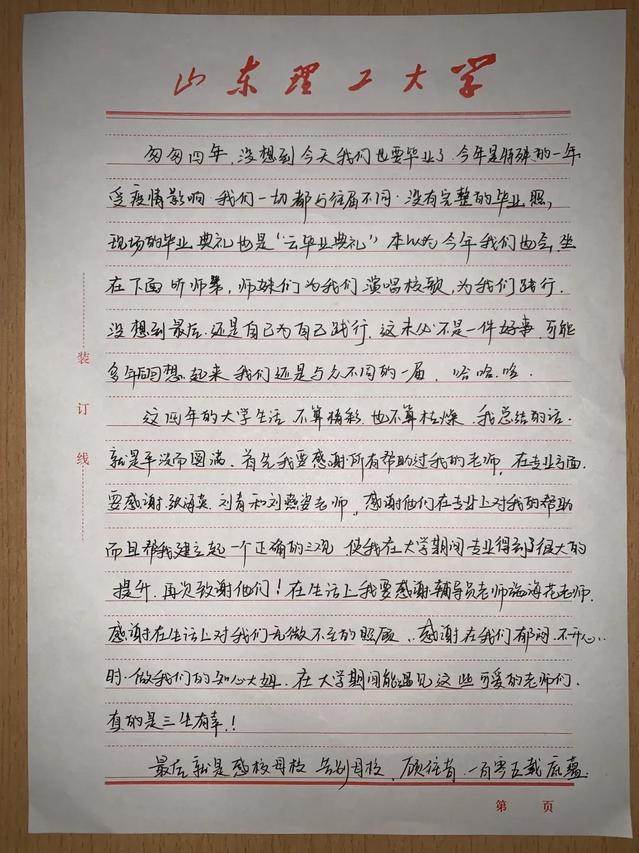 山东理工大学
匆匆四年,没想到今天我们也要毕业了.今年是特殊的一年
受疫情影响.我们一切都与往届不同.没有完整的毕业照,
现场的毕业典礼也是“云毕业典礼”本以为今年我们也会坐
在下面听师弟,师妹们为我们演唱校歌,为我们践行.
没想到最后还是自己为自己践行.这未必不是一件好事,可能
多年后回想起来我们还是与众不同的一届.哈哈哈.
装
订
线
这四年的大学生活不算精彩.也不算枯燥.我总结的话.
就是平淡而圆满.首先我要感谢所有帮助过我的老师,在专业方面.
要感谢张海英.刘青和刘燕姿老师,感谢他们在专业上对我的帮助
而且帮我建立起一个正确的三观.使我在大学期间专业得到了很大的
提升.再次致谢他们!在生活上我要感谢辅导员老师海花老师.
感谢在生活上对我们无微不至的照顾..感谢在我们郁闷.不开心..
时.做我们的知心大姐.在大学期间能遇见这些可爱的老师们.
真的是三生有幸.!
最后就是感校母校.告别母校.顾往昔.一百零五载底蕴.
第 页